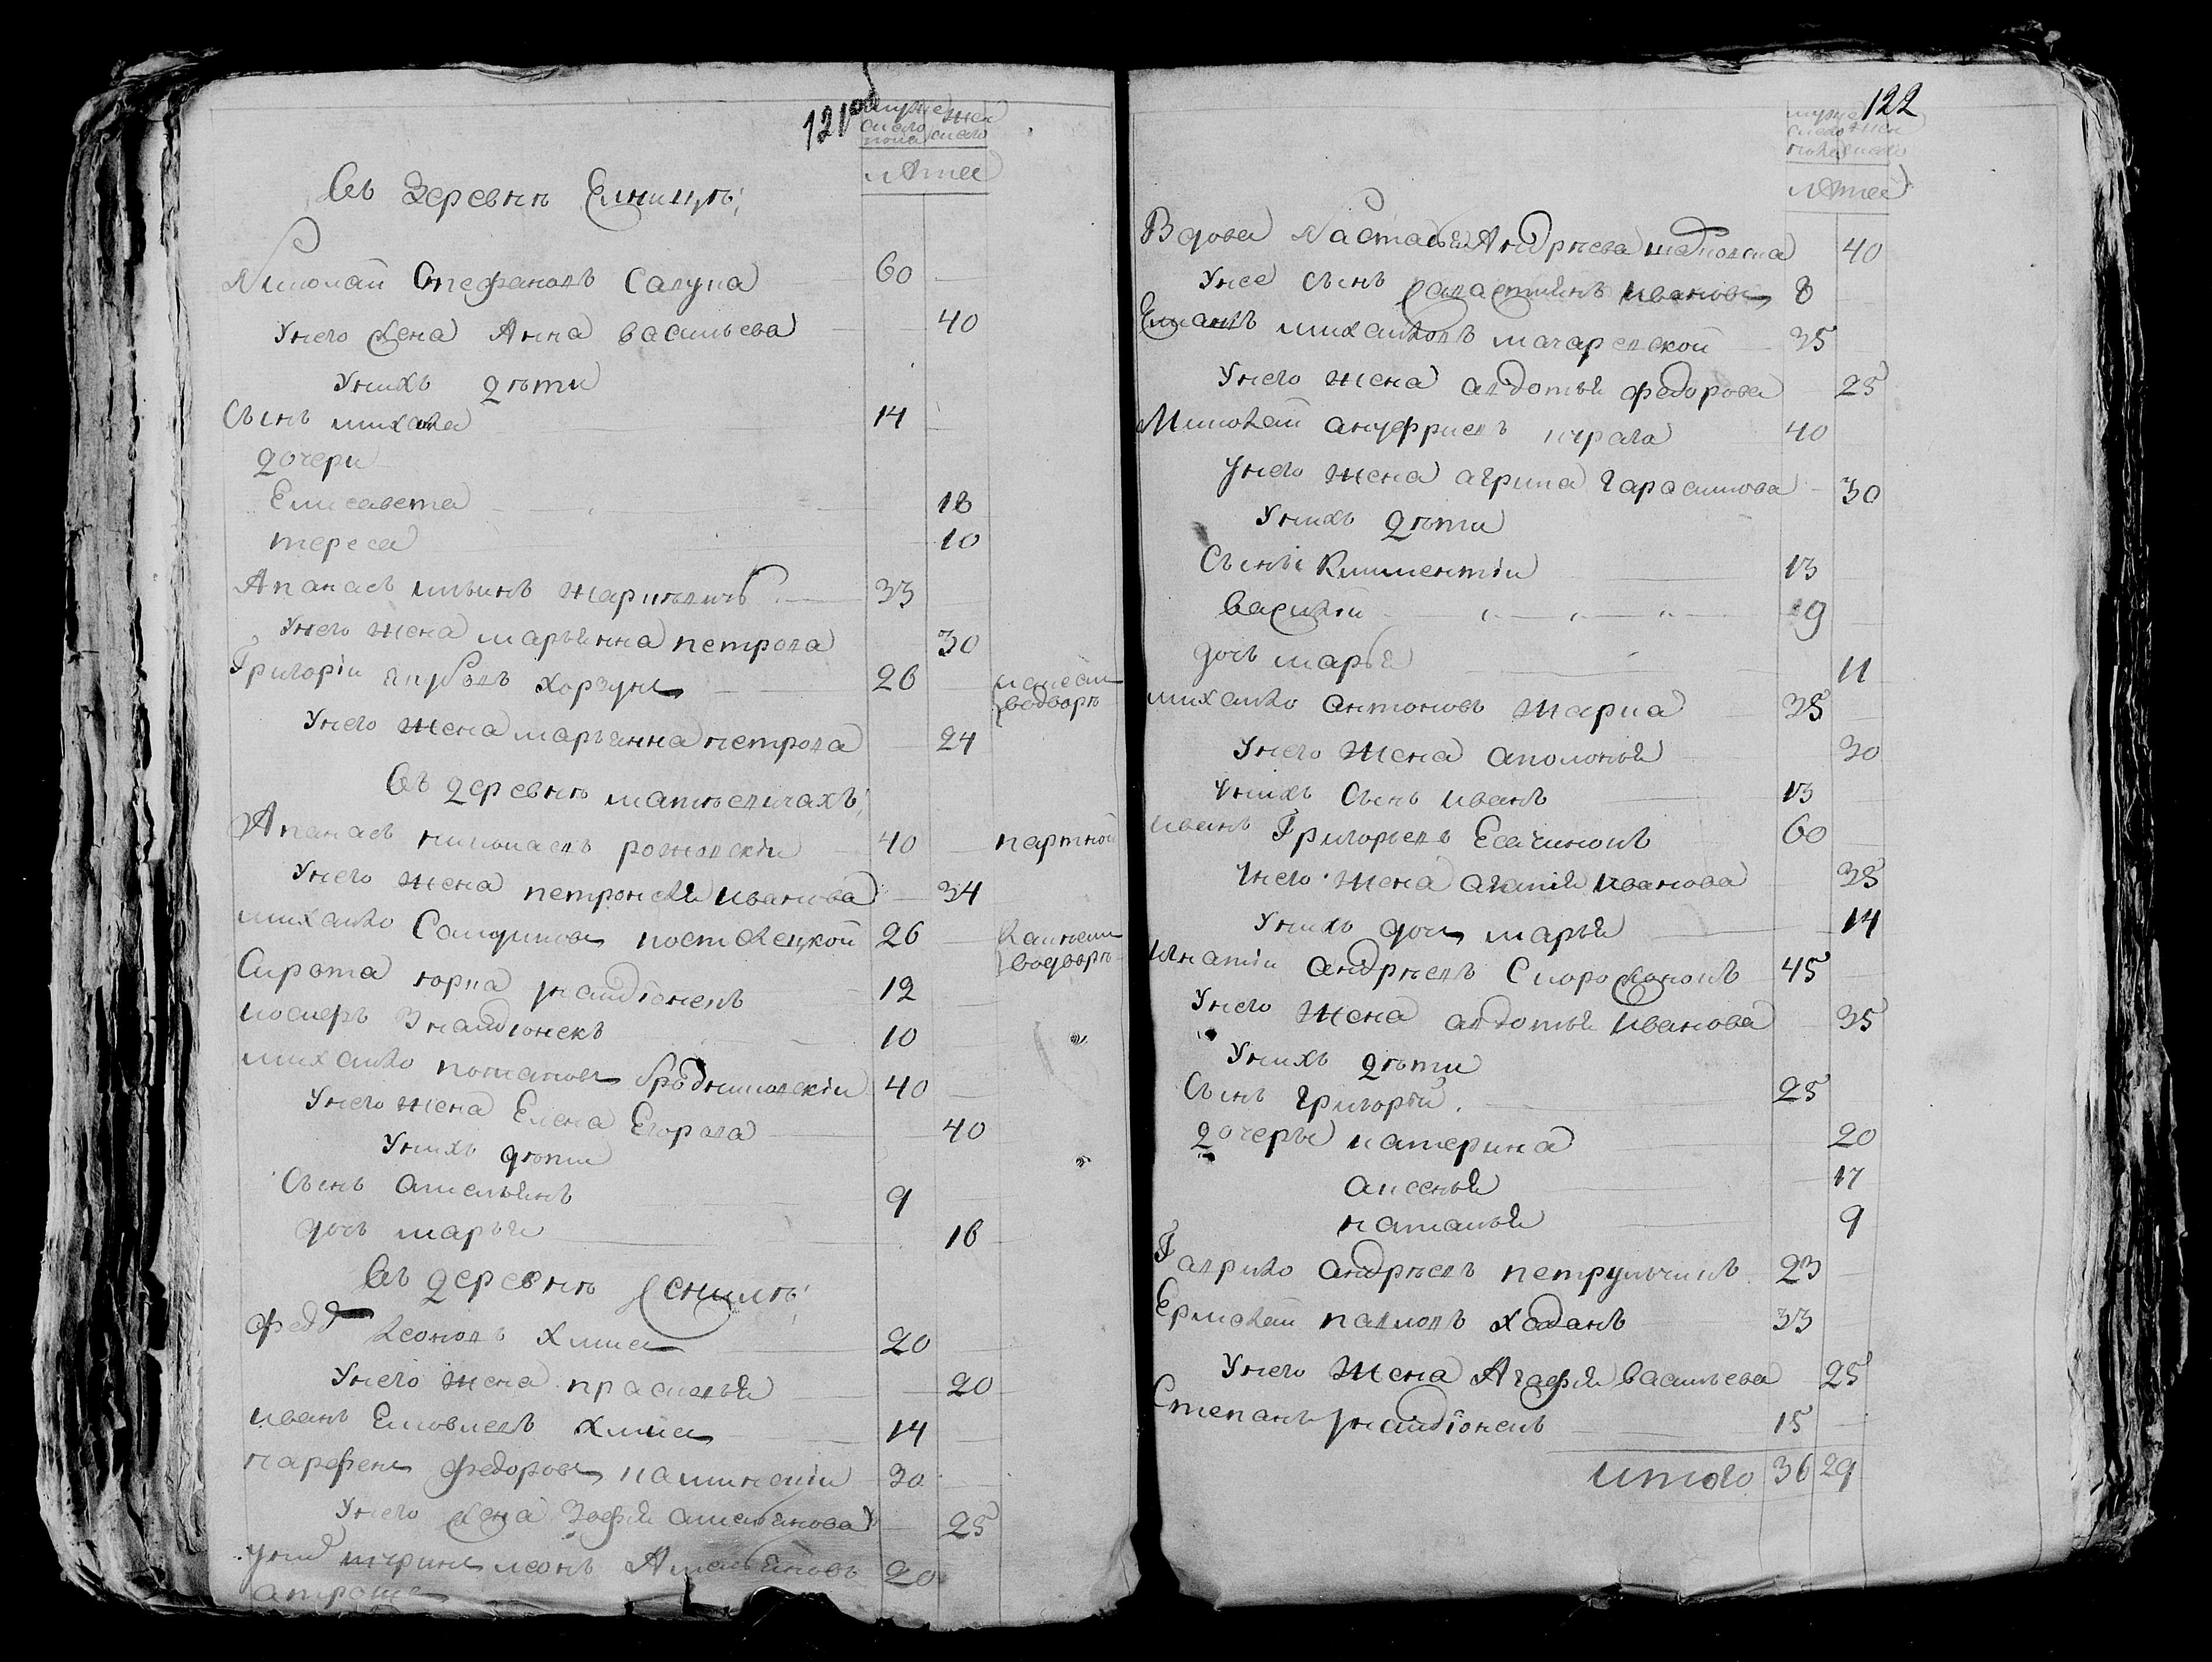 121об
мужеска пола
женска
летъ
Въ деревнѣ Ельницѣ
Николай Стефановъ Салуха 60
У него жена Анна васильева 40
У нихъ дѣти
Сынъ михайла 14
дочери
Елисавета 18
тереса 10
Апанасъ ильинъ жарикевичъ 33
У него жена марьянна петрова 30
Григорiи якубовъ хорзунъ 26
водворѣ
У него жена марьянна петрова 24
Въ деревнѣ матвевичахъ
Апанасъ николаевъ рожновскiи 40 партной
У него жена петронеля иванова 34
михайло постолецкой 26
водворѣ
Сирота юрка знайдiонекъ 12
иосифъ знайдiонекъ 10
михайло романовъ 40
У него жена Елена Егорова 40
У нихъ дѣти
Сынъ амельянъ 9
дочь марья 16
Въ деревнѣ
Федоръ леоновъ хмиль 20
У него жена прасковья 20
иванъ Емовлевъ хмиль 14
парфенъ федоровъ каминскiи 30
У него жена Зофья амельянова 25
леонъ Амельяновъ 20
122
мужеска пола
женска
летъ
Вдова Настасья Андрѣева 40
У нее сынъ иванов 8
михайловъ мачаревской 35
У него жена авдотья федорова 25
Миколай ануфриевъ 40
У него жена агрипа гарасимова 30
У нихъ дѣти
Сынъ Климентiи 13
василiи 9
дочь марья 11
михайло антоновъ жарна 35
У него жена аполонья 30
У нихъ сынъ иванъ 13
иванъ Григорьевъ Есачинокъ 60
У него жена агапiя иванова 35
У нихъ дочь марья 14
Игнатiи андрѣевъ Скороходокъ 45
У него жена авдотья иванова 35
У нихъ дѣти
Сынъ григорiй 25
дочеры катерина 20
аксенья 17
наталья 9
Гаврило андрѣевъ петрульчикъ 23
Ермолай павловъ ходанъ 33
У него жена Агафья васильева 25
Степанъ знайдiонекъ 15
итого 36 29